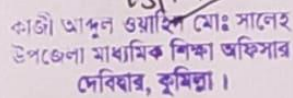 কাজী আব্দুল ওয়াহিদ মোঃ সালেহ
উপজেলা মাধ্যমিক শিক্ষা অফিসার
দেবিদ্বার, কুমিল্লা ।